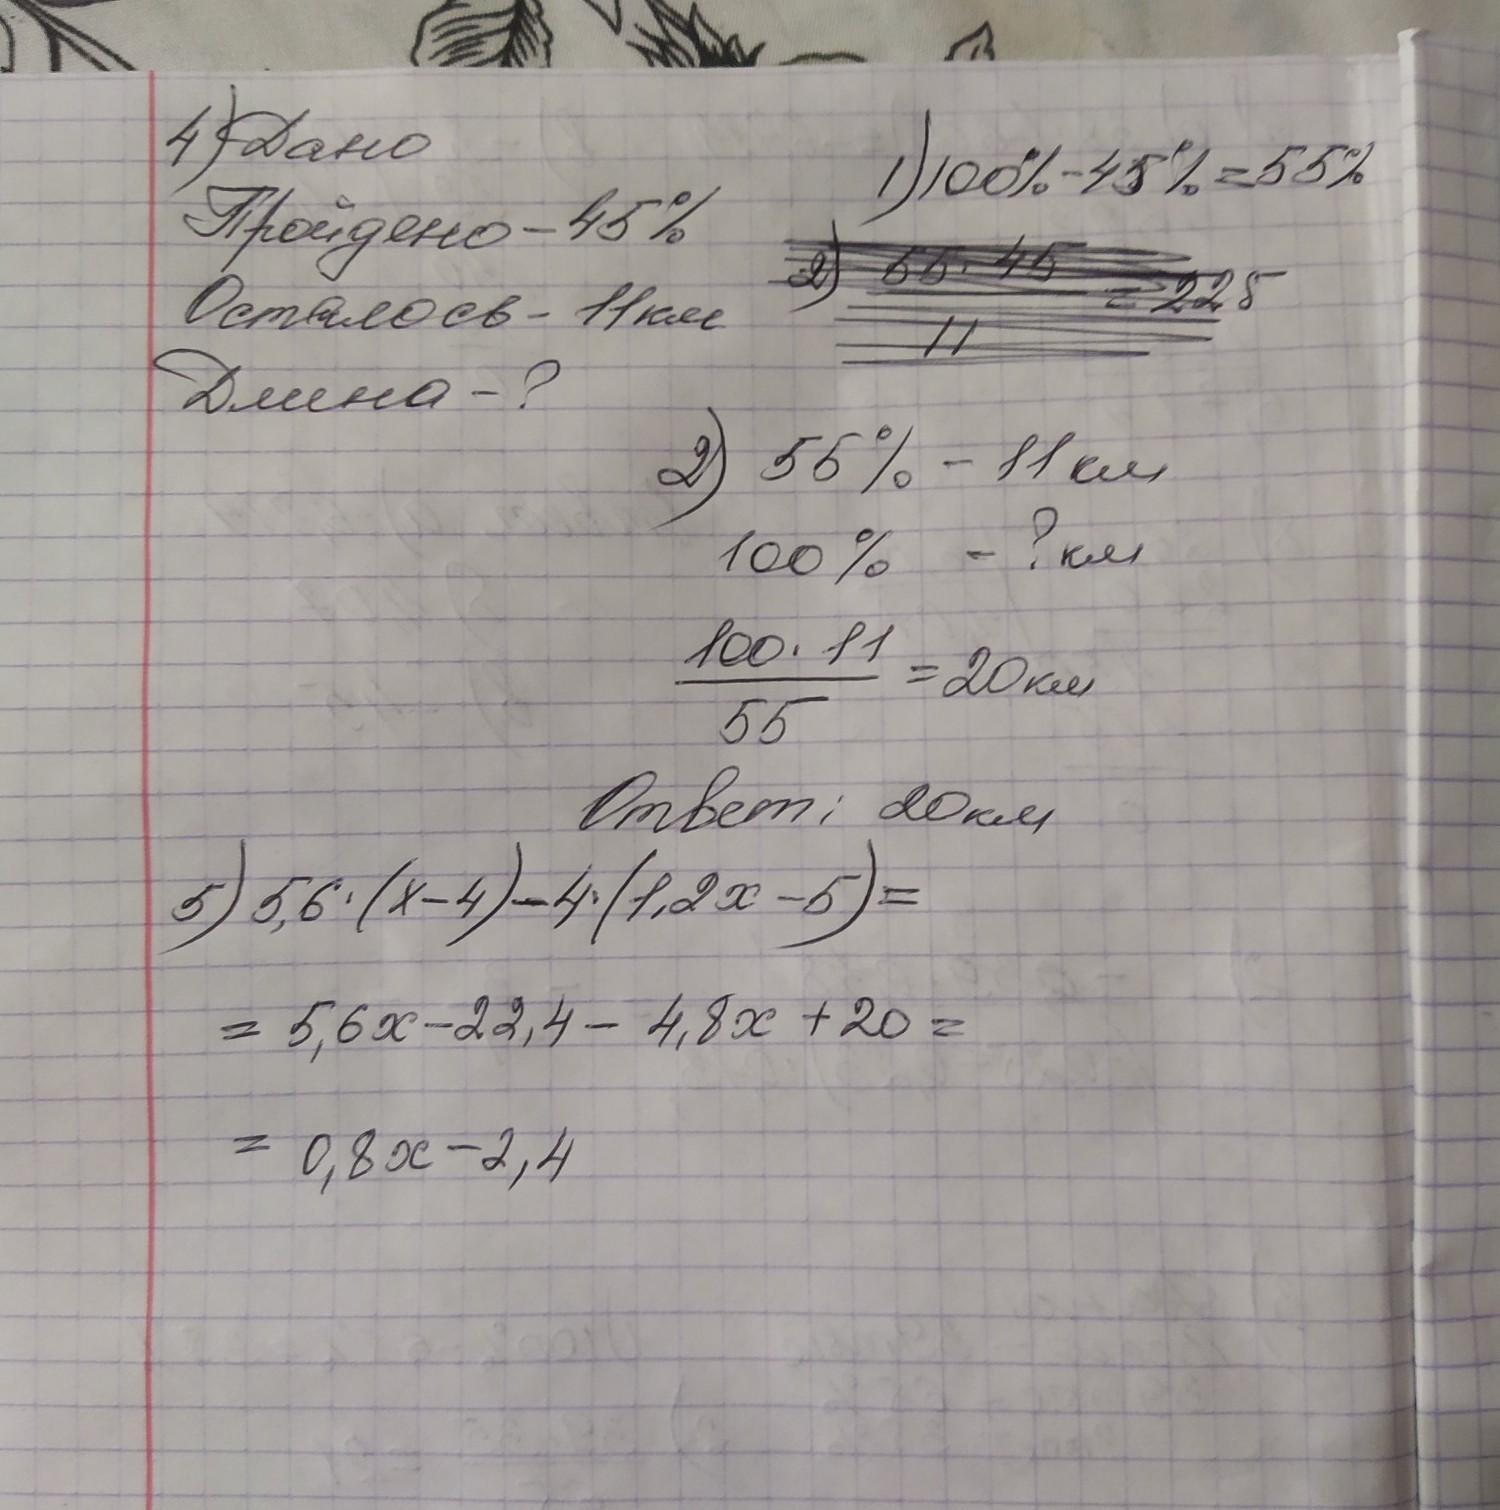 4) Дано
Пройдено - 45%
Осталось - 11 км
Длина - ?
1) 100% - 45% = 55%
2) 55 · 45 / 11 = 225
2) 55% - 11 км
100% - ? км
100 · 11 / 55 = 20 км
Ответ: 20 км
5) 5,6 · (x - 4) - 4 · (1,2x - 5) =
= 5,6x - 22,4 - 4,8x + 20 =
= 0,8x - 2,4